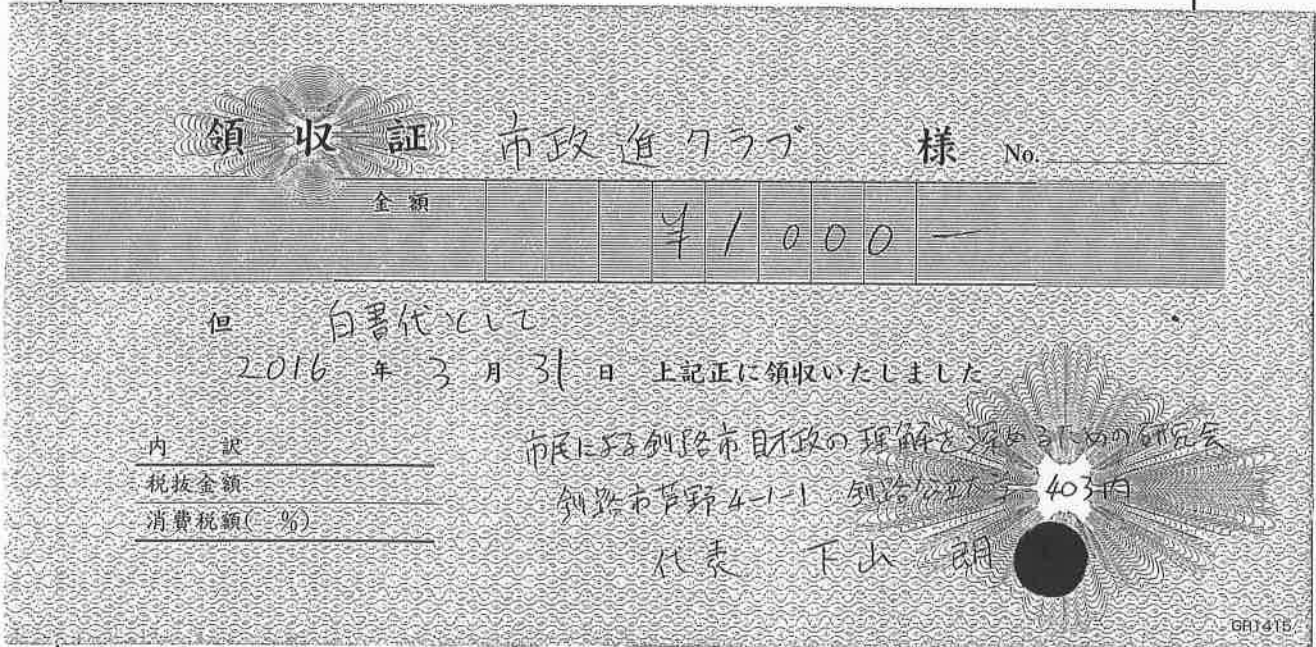 領収証 市政進クラブ 様 No.
金額 ¥1000-
但 白書代として
2016年3月31日 上記正に領収いたしました
内訳
税抜金額
消費税額( %)
市民による釧路市財政の理解を深めるための研究会
釧路市芦野4-1-1 釧路公立大 403内
代表 下山 朗
GR1415